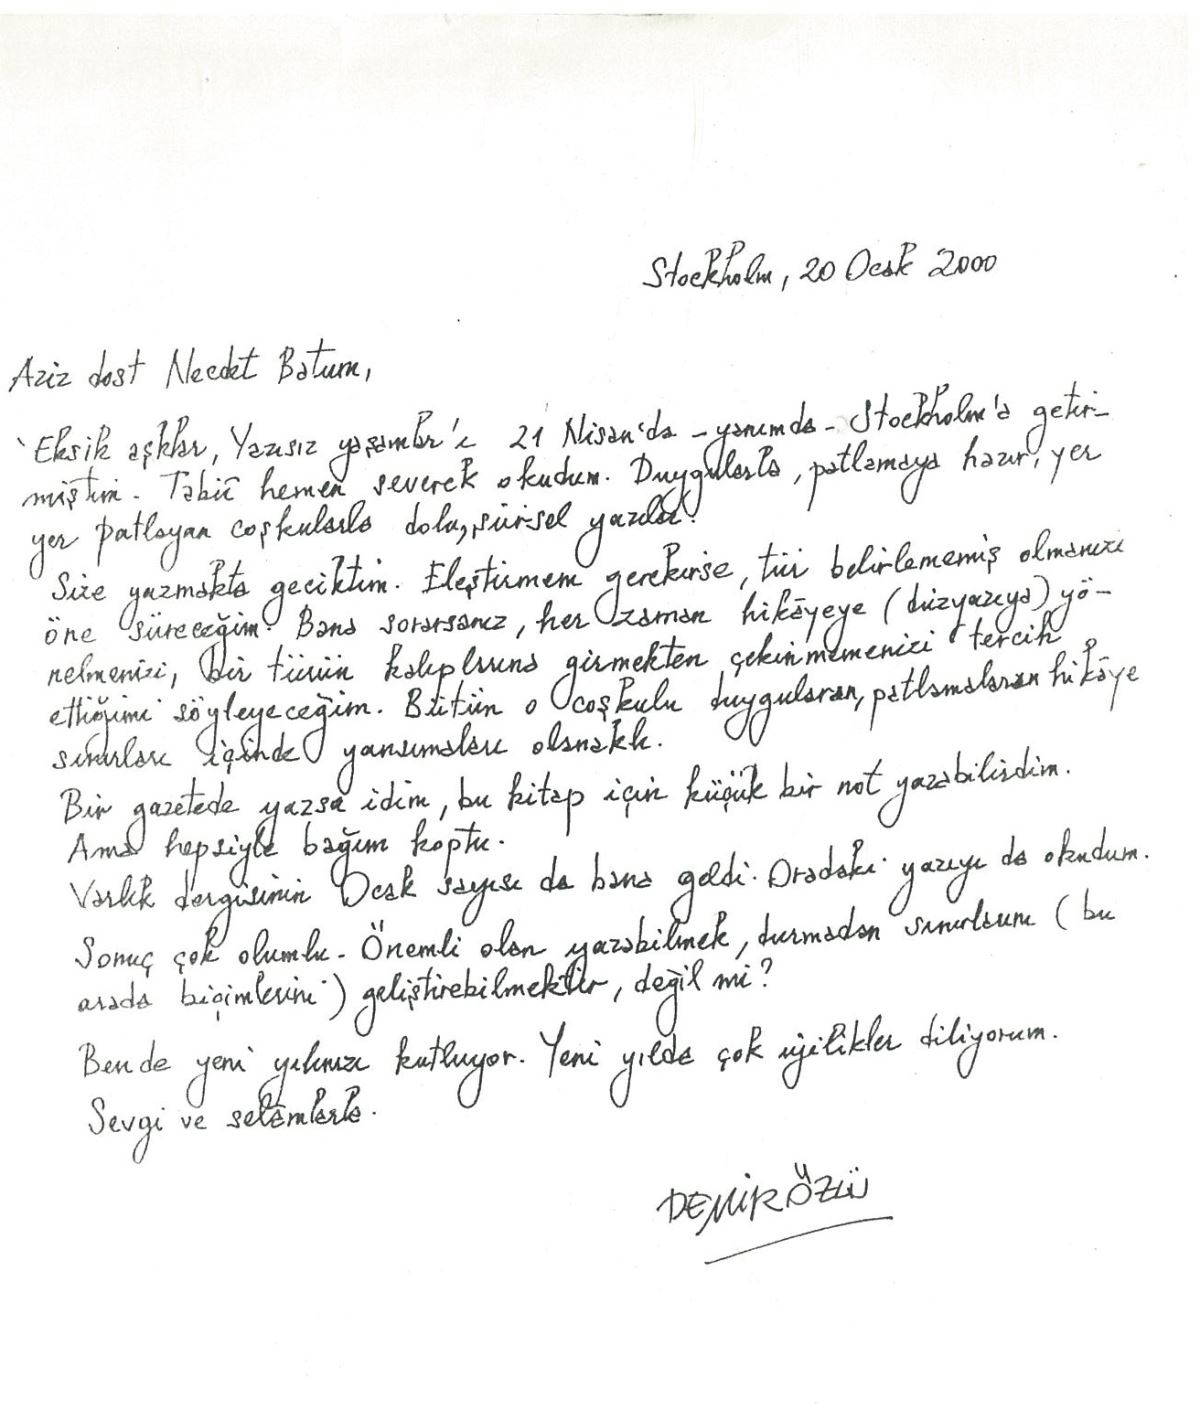 Stockholm, 20 Ocak 2000
Aziz dost Necdet Batum,
'Eksik aşklar, Yazısız yaşamlar'ı 21 Nisan'da - yanımda - Stockholm'a getir-
miştim. Tabiî hemen severek okudum. Duygularla, patlamaya hazır, yer
yer patlayan coşkularla dolu, şiirsel yazılar.
Size yazmakta geciktim. Eleştirmem gerekirse, tür belirlememiş olmanızı
öne süreceğim. Bana sorarsanız, her zaman hikâyeye (düzyazıya) yö-
nelmenizi, bir türün kalıplarına girmekten çekinmemenizi tercih
ettiğimi söyleyeceğim. Bütün o coşkulu duyguların, patlamaların hikâye
sınırları içinde yansımaları olanaklı.
Bir gazetede yazsa idim, bu kitap için küçük bir not yazabilirdim.
Ama hepsiyle bağım koptu.
Varlık dergisinin Ocak sayısı da bana geldi. Oradaki yazıyı da okudum.
Sonuç çok olumlu. Önemli olan yazabilmek, durmadan sınırlarını (bu
arada biçimlerini) geliştirebilmektir, değil mi?
Ben de yeni yılınızı kutluyor. Yeni yılda çok iyilikler diliyorum.
Sevgi ve selâmlarla.
DEMİR ÖZLÜ